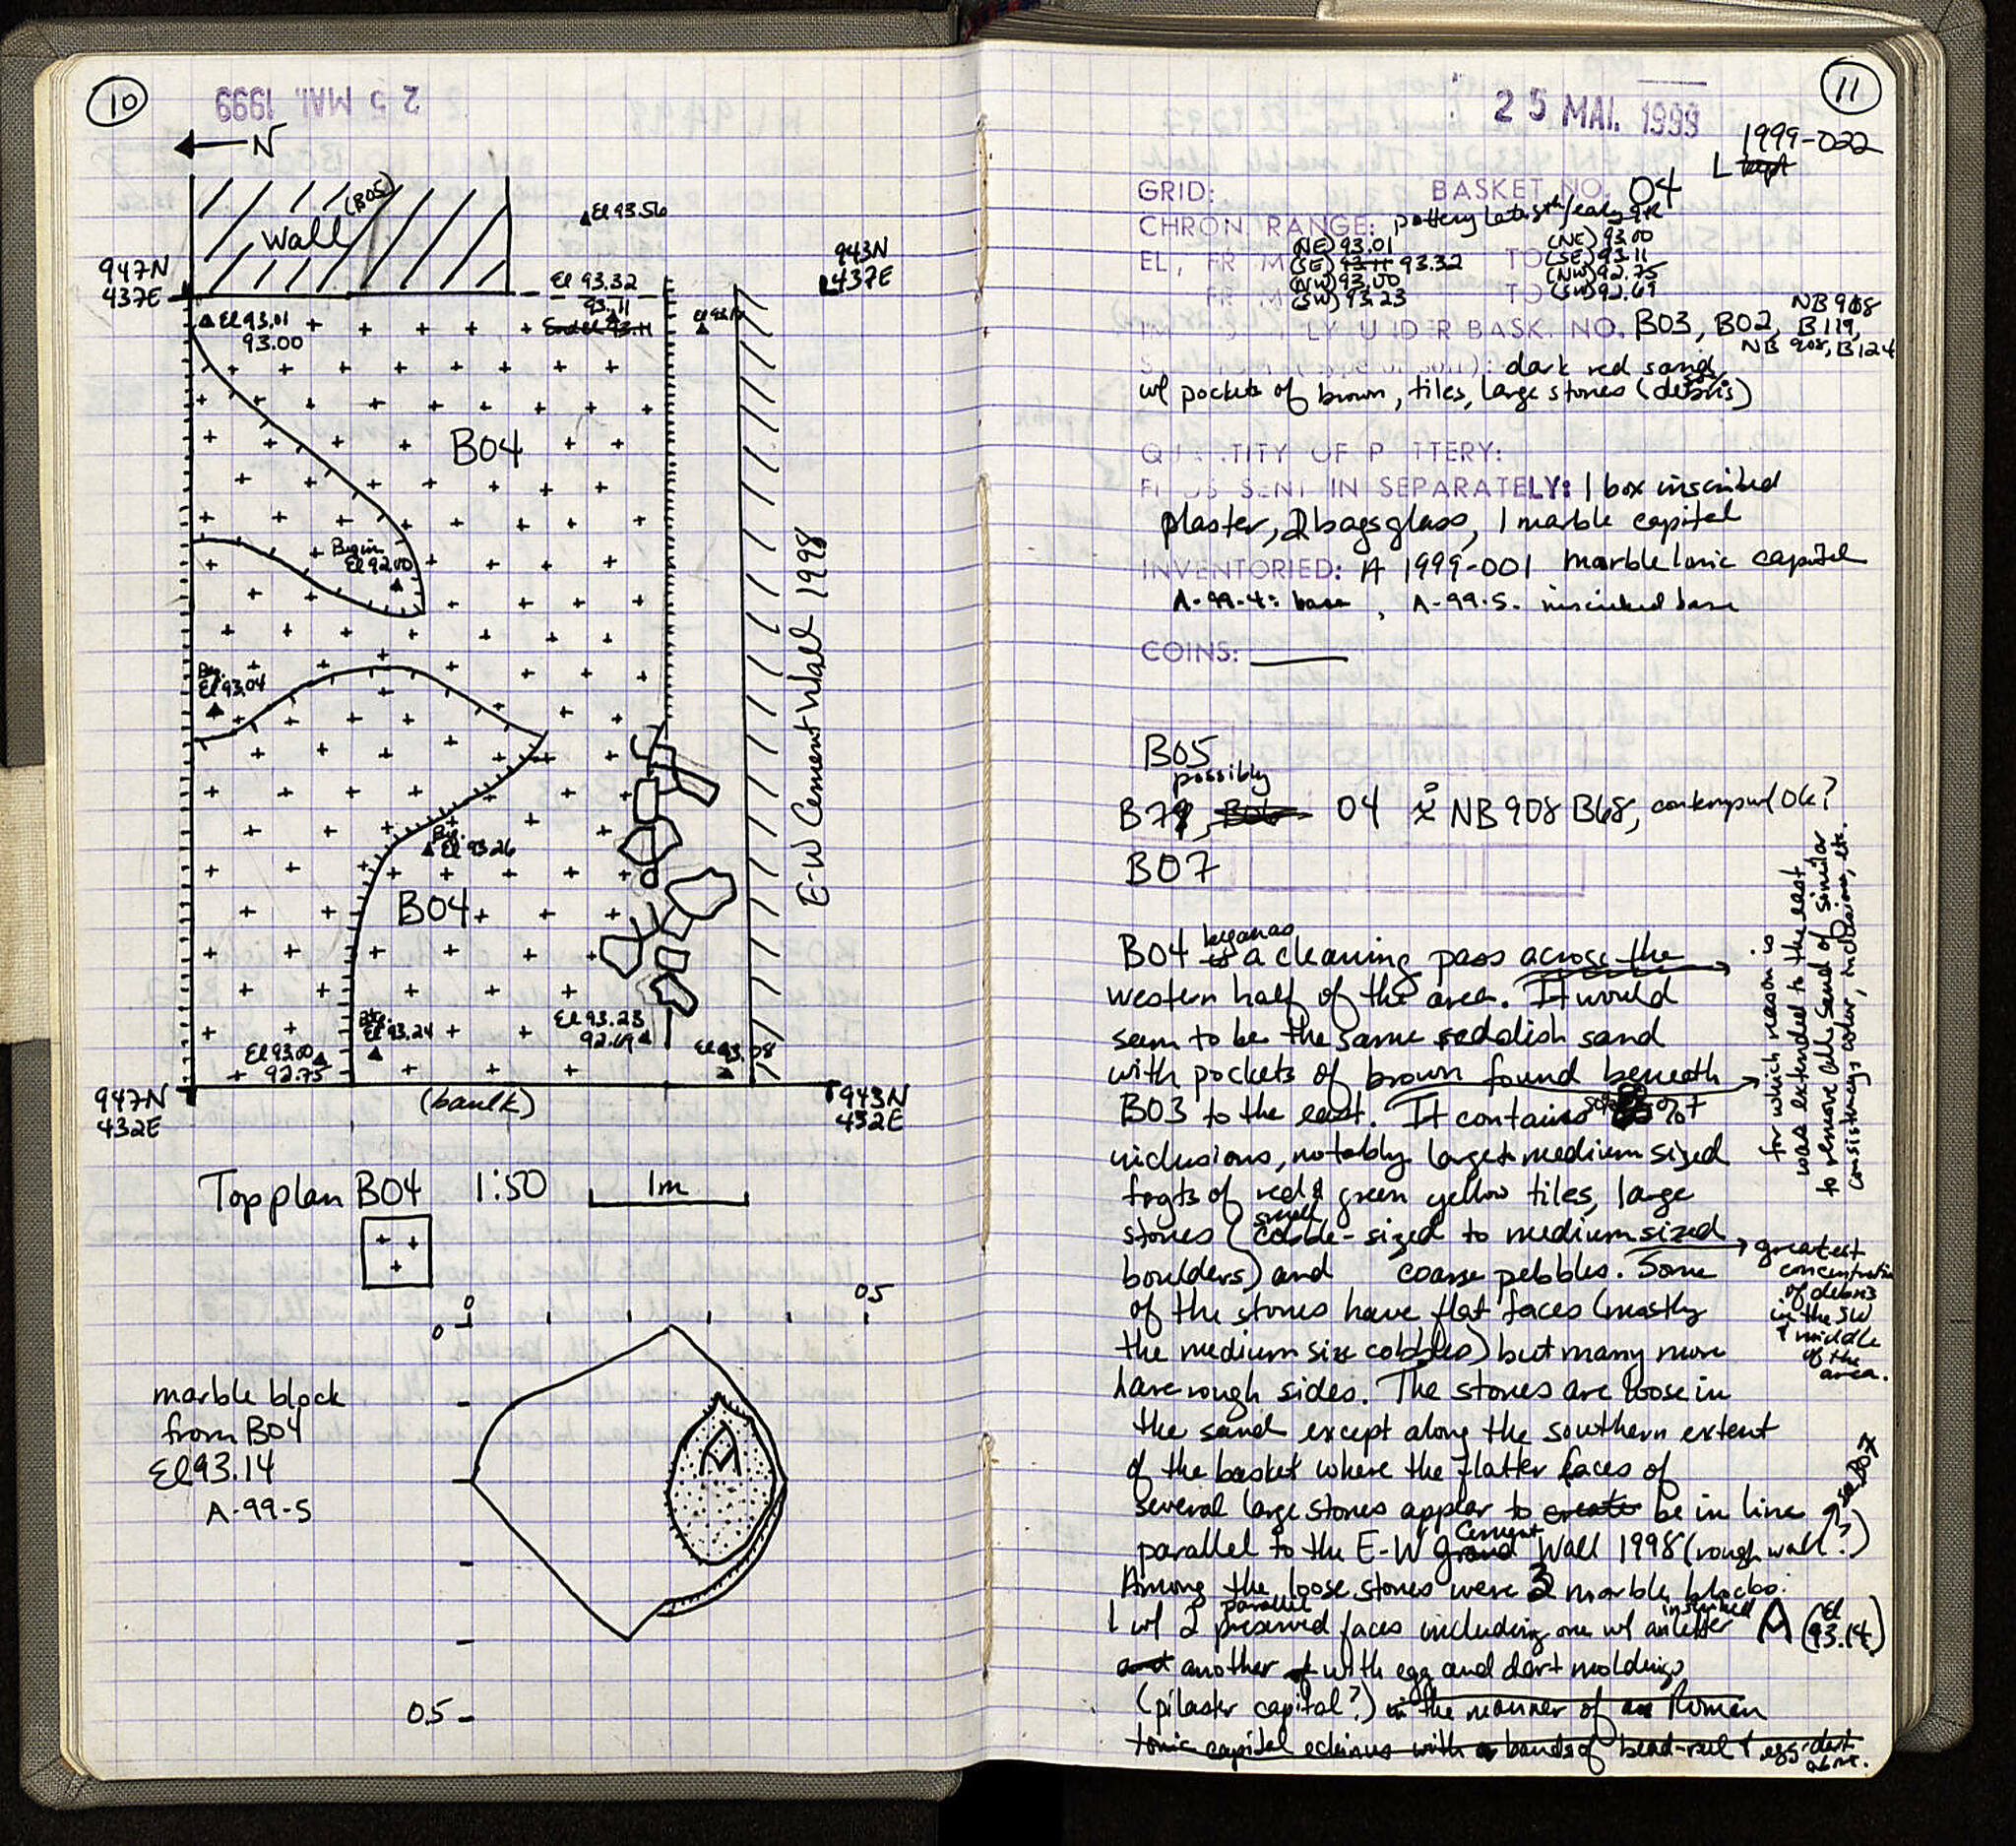 10
25 MAI. 1999
N
Wall (B05)
El 93.56
947N
437E
943N
437E
El 93.32
93.11
End El 93.11
El 93.01
93.00
B04
Begin
El 92.00
E-W Cement Wall 1998
El 93.04
El 93.26
B04
El 93.24
El 93.23
92.69
El 93.00
92.75
El 93.08
947N
432E
(baulk)
943N
432E
Top plan B04 1:50 1m
0 05
0
marble block
from B04
El 93.14
A-99-5
A
05
11
25 MAI. 1999
1999-022
L kept
GRID: BASKET NO. 04
CHRON. RANGE: pottery late 8th/early 9th
EL, FR M (NE) 93.01 TO (NE) 93.00
(SE) 93.11 93.32 (SE) 93.11
(NW) 93.00 (NW) 92.75
FR M (SW) 93.23 TO (SW) 92.69
LY U DER BASK. NO. B03, B02, NB 908 B119,
NB 908, B124
dark red sand,
w/ pockets of brown, tiles, large stones (debris)
QU TITY OF P TTERY:
FI DS SENT IN SEPARATELY: 1 box inscribed
plaster, 2 bags glass, 1 marble capital
INVENTORIED: A 1999-001 marble Ionic capital
A-99-4: base, A-99-5. inscribed base
COINS:
B05
possibly
B79, B06 04 NB 908 B68, contemp w/ 06?
B07
B04 began as a cleaning pass across the
western half of the area. It would
seem to be the same reddish sand
with pockets of brown found beneath
B03 to the east. It contains %+
inclusions, notably large + medium sized
fragts of red & green yellow tiles, large
stones (small cobble-sized to medium sized
boulders) and coarse pebbles. Some
of the stones have flat faces (mostly
the medium size cobbles) but many more
have rough sides. The stones are loose in
the sand except along the southern extent
of the basket where the flatter faces of
several large stones appear to create be in line
parallel to the E-W Cement Wall 1998 (rough wall?)
see B07
Among the loose stones were 3 marble blocks:
1 w/ 2 parallel preserved faces including one w/ an inscribed letter A (El 93.14)
and another with egg and dart molding,
(pilaster capital?) in the manner of an Roman
Ionic capital echinus with a bands of bead-reel & egg-dart
above.
for which reason is
was extended to the east
to remove all sand of similar
consistency, color, inclusions, etc.
greatest
concentration
of debris
in the SW
& middle
of the
area.